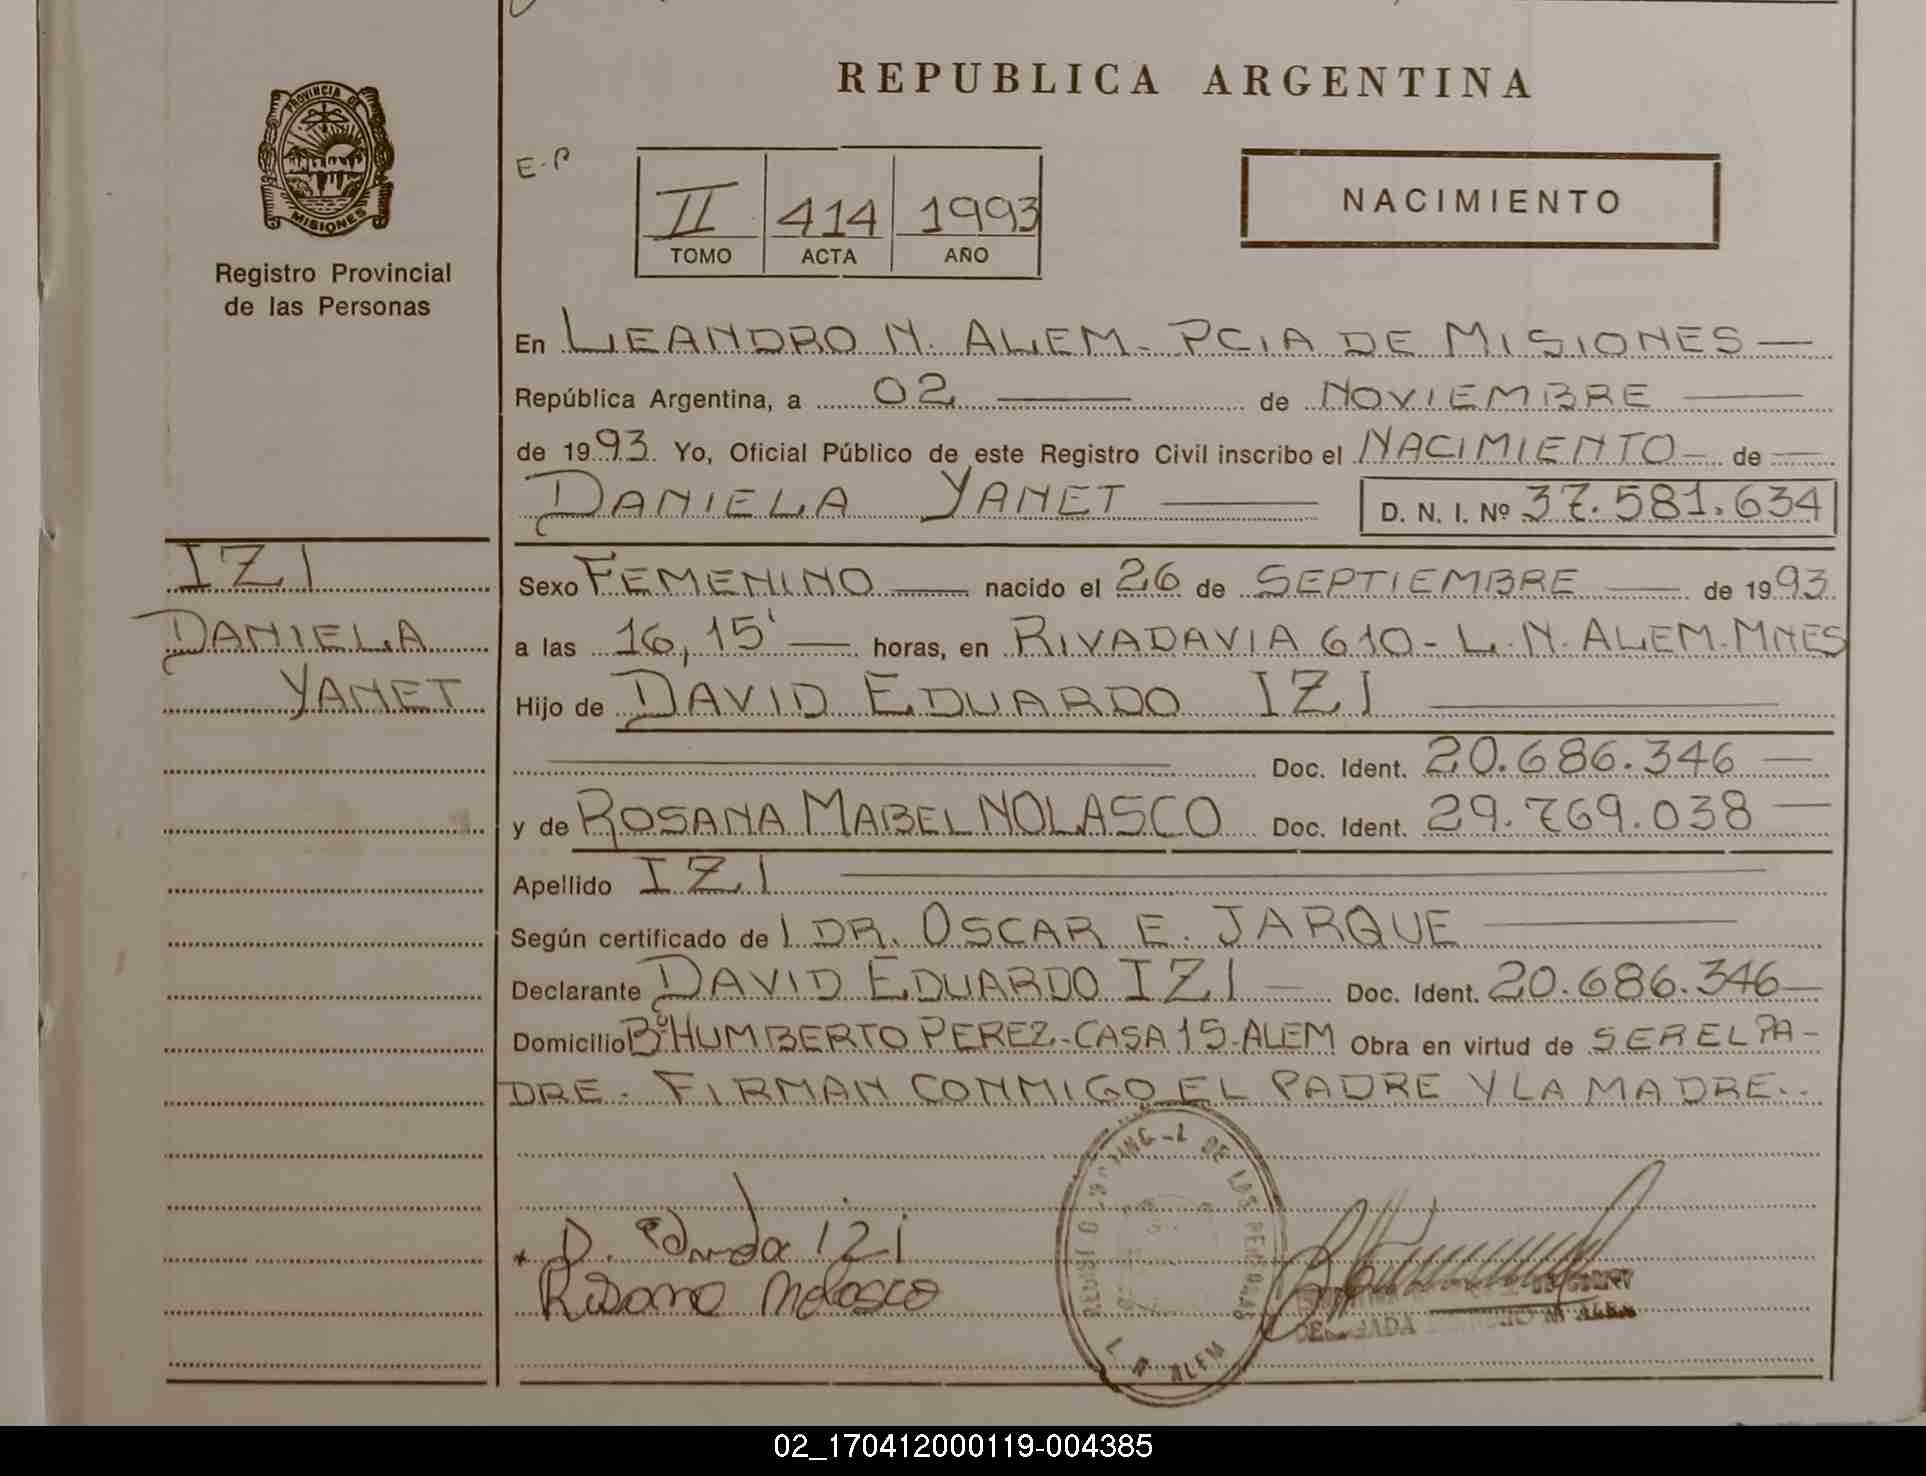 REPUBLICA ARGENTINA
PROVINCIA DE
MISIONES
Registro Provincial
de las Personas
E-P
II 414 1993
TOMO ACTA AÑO
NACIMIENTO
En LEANDRO N. ALEM - PCIA DE MISIONES —
República Argentina, a 02 — de NOVIEMBRE —
de 1993. Yo, Oficial Público de este Registro Civil inscribo el NACIMIENTO — de —
DANIELA YANET — D. N. I. Nº 37.581.634
IZI
DANIELA
YANET
Sexo FEMENINO — nacido el 26 de SEPTIEMBRE — de 1993
a las 16,15' — horas, en RIVADAVIA 610 - L. N. ALEM. MNES
Hijo de DAVID EDUARDO IZI —
— Doc. Ident. 20.686.346 —
y de ROSANA MABEL NOLASCO Doc. Ident. 29.769.038 —
Apellido IZI —
Según certificado de l DR. OSCAR E. JARQUE —
Declarante DAVID EDUARDO IZI — Doc. Ident. 20.686.346 —
Domicilio Bº HUMBERTO PEREZ - CASA 15 - ALEM Obra en virtud de SER EL PA-
DRE. FIRMAN CONMIGO EL PADRE Y LA MADRE. -
DE LAS PERSONAS
L N ALEM
D. Eduardo IZI
Rosana Nolasco
02_170412000119-004385